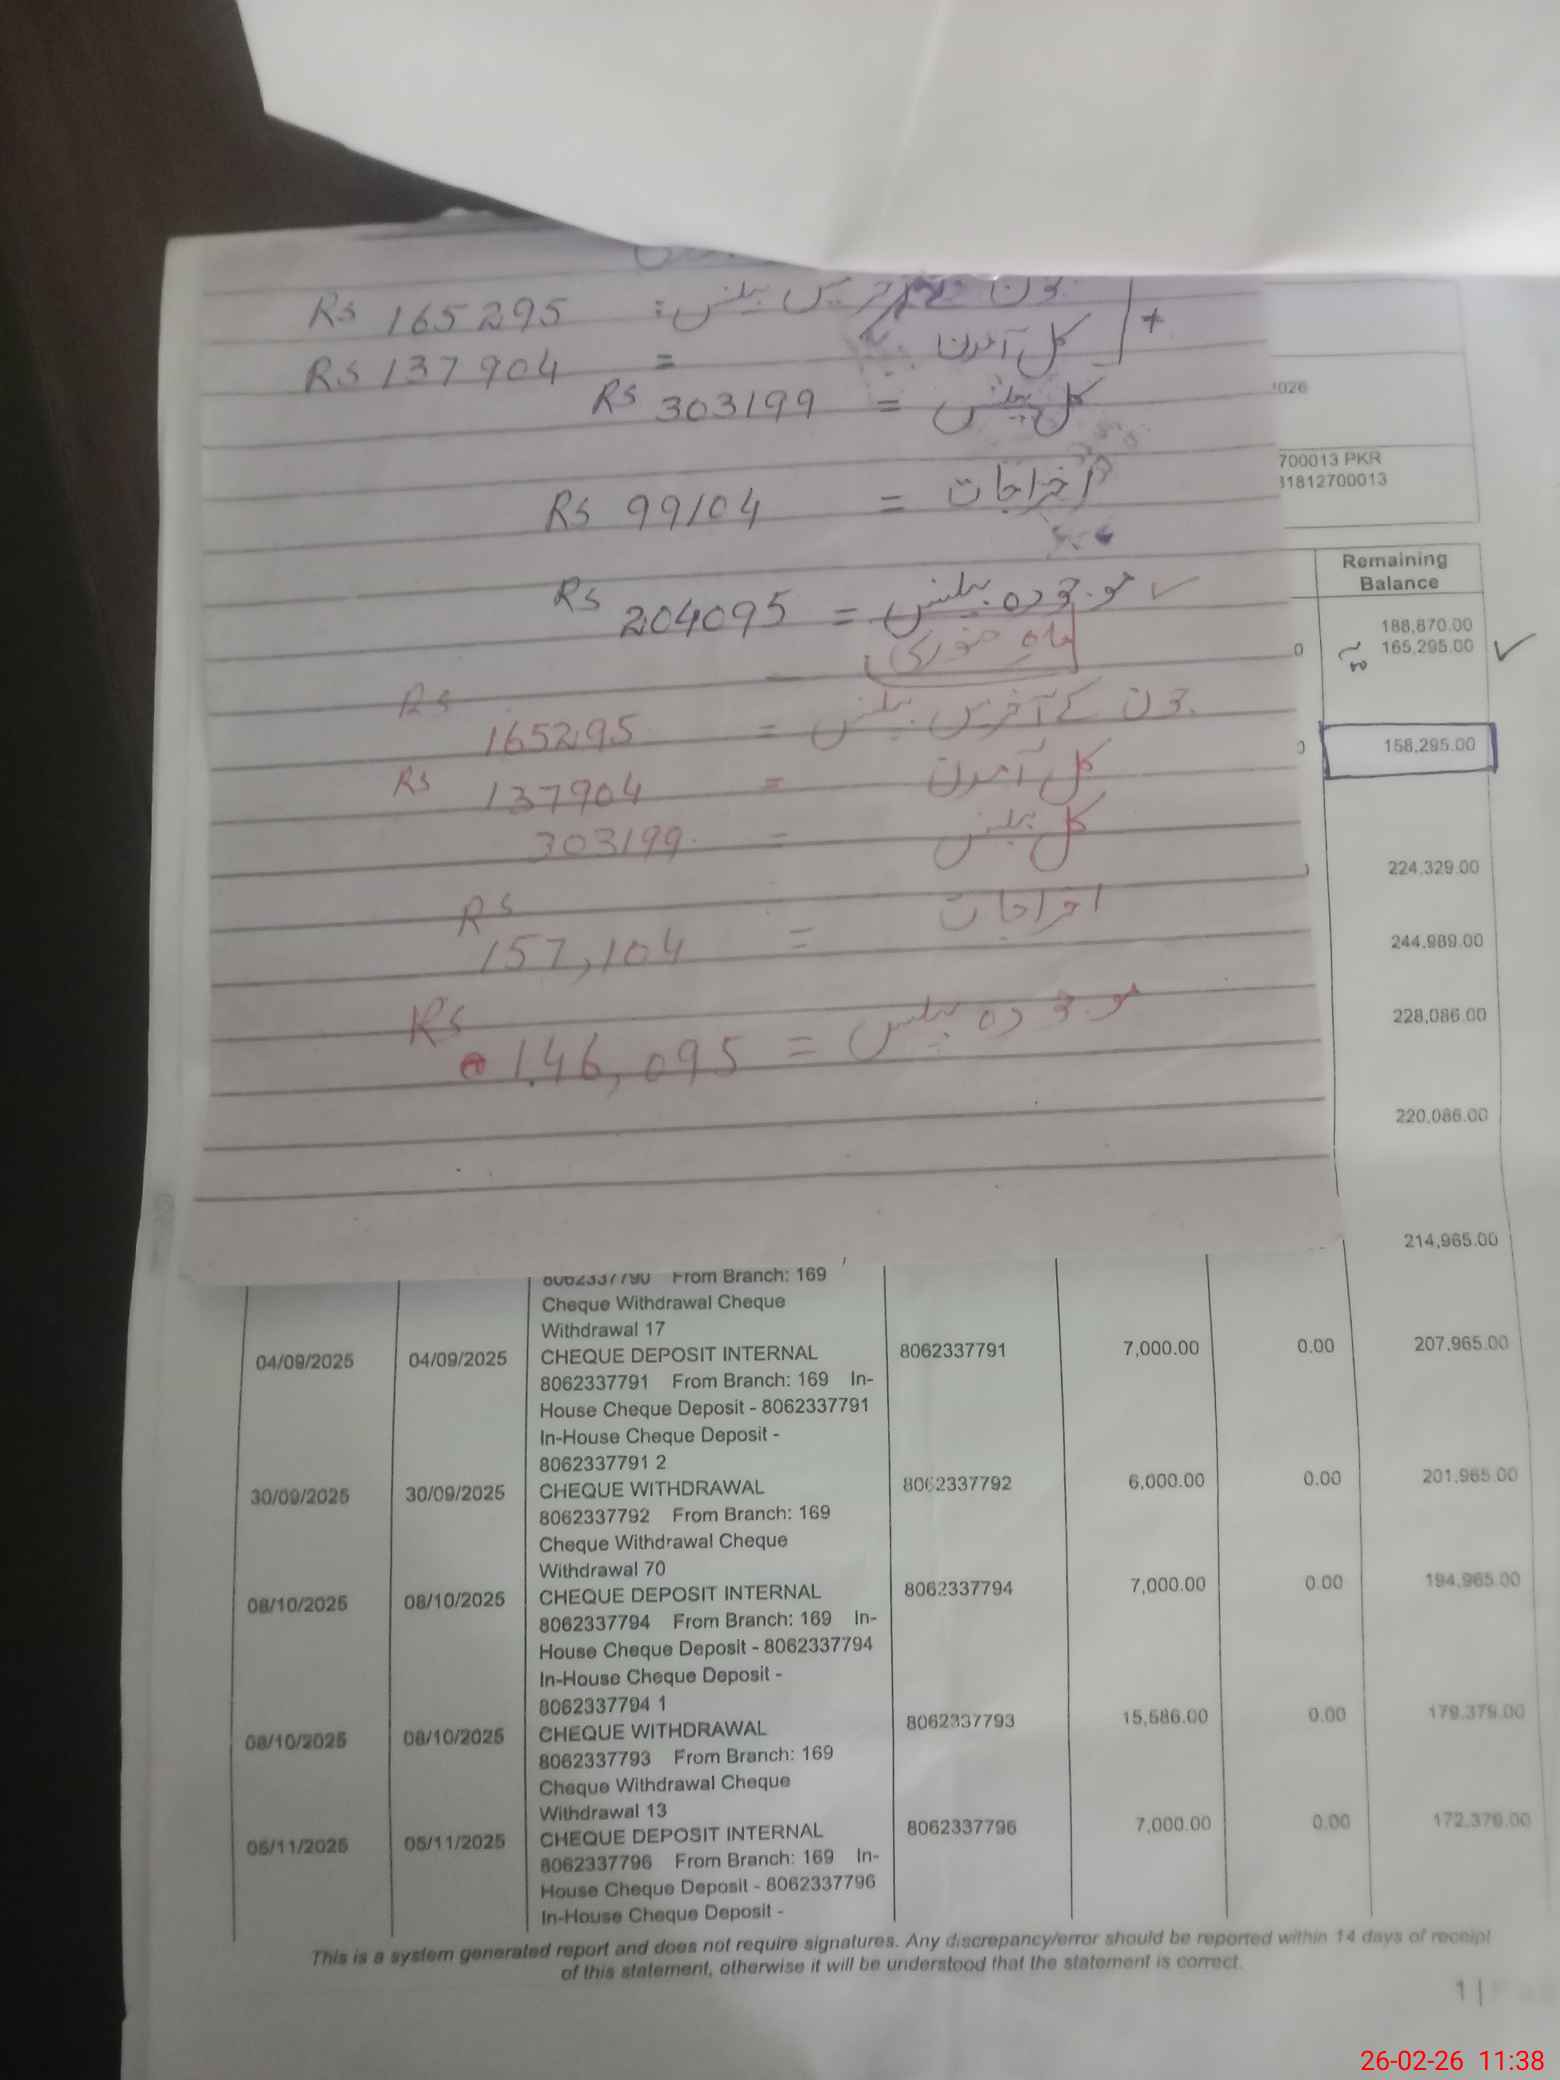 جون کے آخر میں بیلنس: Rs 165295
کل آمدن = Rs 137904
+
کل بیلنس = Rs 303199
اخراجات = Rs 99104
موجودہ بیلنس = Rs 204095
ماہ جنوری
جون کے آخر میں بیلنس = Rs 165295
کل آمدن = Rs 137904
کل بیلنس = 303199
اخراجات = Rs 157,104
موجودہ بیلنس = Rs 146,095
026
700013 PKR
31812700013
Remaining
Balance
188,870.00
0 165,295.00
158,295.00
224,329.00
244,989.00
228,086.00
220,086.00
214,965.00
8062337790 From Branch: 169
Cheque Withdrawal Cheque
Withdrawal 17
04/09/2025 04/09/2025 CHEQUE DEPOSIT INTERNAL 8062337791 7,000.00 0.00 207,965.00
8062337791 From Branch: 169 In-
House Cheque Deposit - 8062337791
In-House Cheque Deposit -
8062337791 2
30/09/2025 30/09/2025 CHEQUE WITHDRAWAL 8062337792 6,000.00 0.00 201,965.00
8062337792 From Branch: 169
Cheque Withdrawal Cheque
Withdrawal 70
08/10/2025 08/10/2025 CHEQUE DEPOSIT INTERNAL 8062337794 7,000.00 0.00 194,965.00
8062337794 From Branch: 169 In-
House Cheque Deposit - 8062337794
In-House Cheque Deposit -
8062337794 1
08/10/2025 08/10/2025 CHEQUE WITHDRAWAL 8062337793 15,586.00 0.00 179,379.00
8062337793 From Branch: 169
Cheque Withdrawal Cheque
Withdrawal 13
05/11/2025 05/11/2025 CHEQUE DEPOSIT INTERNAL 8062337796 7,000.00 0.00 172,379.00
8062337796 From Branch: 169 In-
House Cheque Deposit - 8062337796
In-House Cheque Deposit -
This is a system generated report and does not require signatures. Any discrepancy/error should be reported within 14 days of receipt
of this statement, otherwise it will be understood that the statement is correct.
1 |
26-02-26 11:38